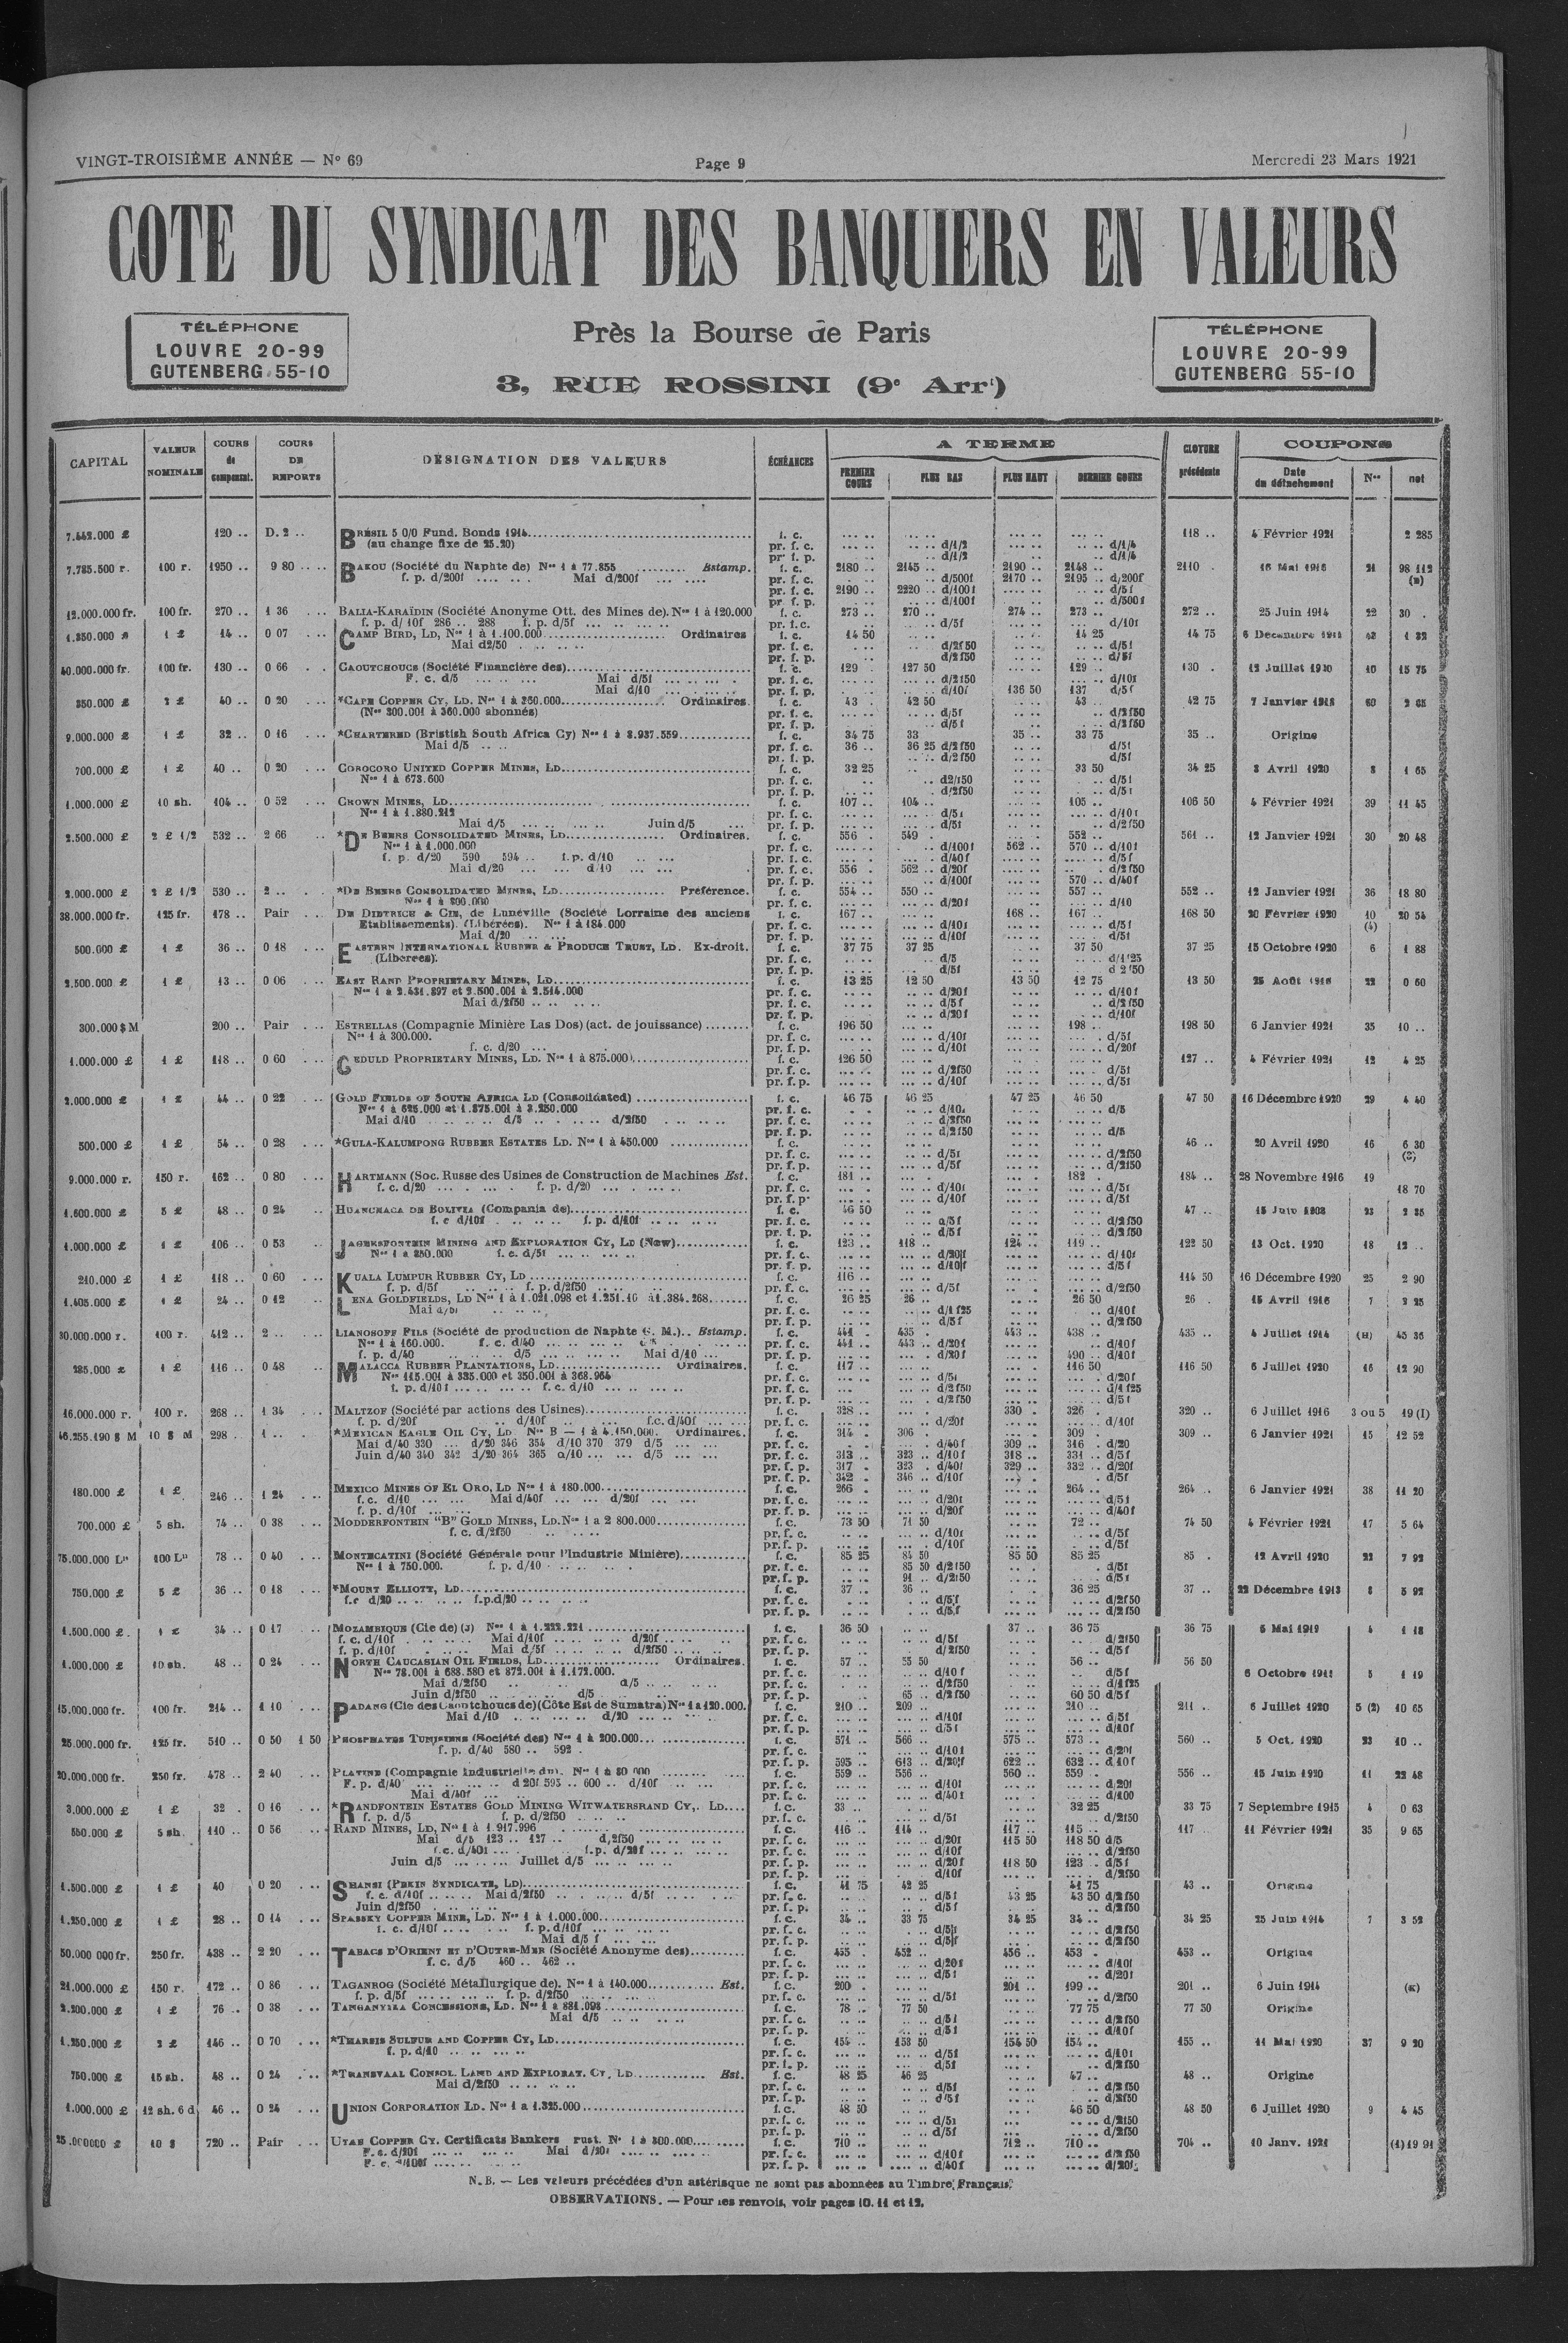 VINGT-TROISIÈME ANNÉE — N° 69
Page 9
Mercredi 23 Mars 1921
COTE DU SYNDICAT DES BANQUIERS EN VALEURS
TÉLÉPHONE
LOUVRE 20-99
GUTENBERG 55-10
Près la Bourse de Paris
3, RUE ROSSINI (9e Arrt)
TÉLÉPHONE
LOUVRE 20-99
GUTENBERG 55-10
CAPITAL VALEUR NOMINALE COURS de compensat. COURS DE REPORTS DÉSIGNATION DES VALEURS ÉCHÉANCES A TERME PREMIER COURS PLUS BAS PLUS HAUT DERNIER COURS CLOTURE précédente COUPONS Date du détachement Nos net
7.442.000 £ 120 .. D. 2 .. BRÉSIL 5 0/0 Fund. Bonds 1914 f. c. 118 .. 4 Février 1921 2 285
(au change fixe de 25.20) pr. f. c. d/1/2 d/1/4
pr. f. p. d/1/2 d/1/4
7.785.500 r. 100 r. 1950 .. 9 80 BAKOU (Société du Naphte de) Nos 1 à 77.855 Estamp. f. c. 2180 .. 2145 .. 2190 .. 2148 .. 2110 . 16 Mai 1916 21 98 112
f. p. d/200f Mai d/200f pr. f. c. d/500f 2170 .. 2195 .. d/200f
pr. f. c. 2190 .. 2220 .. d/100f d/5f
pr. f. p. d/100f d/500f
12.000.000 fr. 100 fr. 270 .. 1 36 BALIA-KARAÏDIN (Société Anonyme Ott. des Mines de). Nos 1 à 120.000 f. c. 273 .. 270 .. 274 .. 273 .. 272 .. 25 Juin 1914 22 30 .
f. p. d/10f 286 .. 288 f. p. d/5f pr. f. c. d/5f d/10f
1.350.000 £ 1 £ 14 .. 0 07 CAMP BIRD, LD, Nos 1 à 1.100.000 Ordinaires f. c. 14 50 14 25 14 75 42 1 32
Mai d2/50 pr. f. c. d/2f50 d/5f
pr. f. p. d/2f50 d/5f
40.000.000 fr. 100 fr. 130 .. 0 66 CAOUTCHOUCS (Société Financière des) f. c. 129 . 127 50 129 .. 130 . 12 Juillet 1920 10 15 75
F. c. d/5 Mai d/5f pr. f. c. d/2f50 d/10f
Mai d/10 pr. f. p. d/10f 136 50 137 d/5f
2 £ 40 .. 0 20 *CAPE COPPER CY, LD. Nos 1 à 360.000 Ordinaires. f. c. 43 . 42 50 43 .. 42 75 7 Janvier 60
(Nos 300.001 à 360.000 abonnés) pr. f. c. d/5f d/2f50
pr. f. p. d/5f d/2f50
9.000.000 1 £ 32 .. 0 16 *CHARTERED (Bristish South Africa Cy) Nos 1 à 8.937.559 f. c. 34 75 33 35 .. 33 75 35 .. Origine
Mai d/5 pr. f. c. 36 .. 36 25 d/2f50 d/5f
pr. f. p. d/2f50 d/5f
700.000 £ 1 £ 40 .. 0 20 COROCORO UNITED COPPER MINES, LD f. c. 32 25 33 50 34 25 8 Avril 1920 8 1 65
Nos 1 à 673.600 pr. f. c. d2/f50 d/5f
pr. f. p. d/2f50 d/5f
1.000.000 £ 10 sh. 104 .. 0 52 CROWN MINES, LD f. c. 107 .. 104 .. 105 .. 106 50 4 Février 1921 39 11 45
Nos 1 à 1.880.212 pr. f. c. d/5f d/10f
Mai d/5 Juin d/5 pr. f. p. d/5f d/2f50
2.500.000 £ 2 £ 1/2 532 .. 2 66 *DE BEERS CONSOLIDATED MINES, LD Ordinaires. f. c. 556 . 549 . 552 .. 561 .. 12 Janvier 1921 30 20 48
Nos 1 à 1.000.000 pr. f. c. d/100f 562 .. 570 .. d/10f
f. p. d/20 590 594 .. f. p. d/10 pr. f. c. d/40f d/5f
Mai d/20 d/10 pr. f. c. 556 . 562 .. d/20f d/2f50
pr. f. p. d/100f 570 .. d/40f
2.000.000 £ 2 £ 1/2 530 .. 2 .. *DE BEERS CONSOLIDATED MINES, LD Préférence. f. c. 554 .. 550 .. 557 .. 552 .. 12 Janvier 1921 36 18 80
Nos 1 à 800.000 pr. f. c. d/20f d/10
38.000.000 fr. 125 fr. 178 .. Pair DE DIETRICH & CIE, de Lunéville (Société Lorraine des anciens f. c. 167 .. 168 .. 167 .. 168 50 20 Février 1920 10 20 54
Etablissements). (Libérées). Nos 1 à 184.000 pr. f. c. d/10f d/5f (4)
Mai d/20 pr. f. p. d/10f d/5f
500.000 £ 1 £ 36 .. 0 18 EASTERN INTERNATIONAL RUBBER & PRODUCE TRUST, LD. Ex-droit. f. c. 37 75 37 25 37 50 37 25 15 Octobre 1920 6 1 88
(Liberees). pr. f. c. d/5 d/1f25
pr. f. p. d/5f d 2f50
2.500.000 £ 1 £ 13 .. 0 06 EAST RAND PROPRIETARY MINES, LD f. c. 13 25 12 50 13 50 12 75 13 50 25 Août 22 0 60
Nos 1 à 2.431.897 et 2.500.001 à 2.514.000 pr. f. c. d/20f d/10f
Mai d/2f50 pr. f. c. d/5f d/2f50
pr. f. p. d/20f d/10f
300.000 $ M 200 .. Pair ESTRELLAS (Compagnie Minière Las Dos) (act. de jouissance) f. c. 196 50 198 .. 198 50 6 Janvier 1921 35 10 ..
Nos 1 à 300.000. pr. f. c. d/10f d/5f
f. c. d/20 pr. f. p. d/10f d/20f
1.000.000 £ 1 £ 118 .. 0 60 GEDULD PROPRIETARY MINES, LD. Nos 1 à 875.000 f. c. 126 50 127 .. 4 Février 1921 12 4 25
pr. f. c. d/2f50 d/5f
pr. f. p. d/10f d/5f
2.000.000 £ 1 £ 44 .. 0 22 GOLD FIELDS OF SOUTH AFRICA LD (Consolidated) f. c. 46 75 46 25 47 25 46 50 47 50 16 Décembre 1920 29 4 40
Nos 1 à 625.000 et 1.375.001 à 3.250.000 pr. f. c. d/10f d/5
Mai d/10 d/5 d/2f50 pr. f. c. d/2f50
pr. f. p. d/2f50 d/5
500.000 £ 1 £ 54 .. 0 28 *GULA-KALUMPONG RUBBER ESTATES LD. Nos 1 à 450.000 f. c. 46 .. 20 Avril 1920 16 6 30
pr. f. c. d/5f d/2f50
pr. f. p. d/5f d/2f50
9.000.000 r. 150 r. 162 .. 0 80 HARTMANN (Soc. Russe des Usines de Construction de Machines Est. f. c. 181 .. 182 . 184 .. 28 Novembre 1916 19 18 70
f. c. d/20 f. p. d/20 pr. f. c. d/10f d/5f
pr. f. p. d/10f d/5f
1.600.000 £ 5 £ 48 .. 0 24 HUANCHACA DE BOLIVIA (Compania de) f. c. 46 50 47 .. 23
f. c d/10f f. p. d/10f pr. f. c. d/5f d/2f50
pr. f. p. d/5f d/2f50
1.000.000 £ 1 £ 106 .. 0 53 JAGERSFONTEIN MINING AND EXPLORATION CY, LD (New) f. c. 123 .. 118 .. 124 .. 119 .. 122 50 13 Oct. 1920 18 12 ..
Nos 1 à 250.000 f. c. d/5f pr. f. c. d/20f d/10f
pr. f. p. d/10f d/5f
210.000 £ 1 £ 118 .. 0 60 KUALA LUMPUR RUBBER CY, LD f. c. 116 .. 114 50 16 Décembre 1920 25 2 90
f. p. d/5f f. p. d/2f50 pr. f. c. d/5f d/2f50
1.405.000 £ 1 £ 24 .. 0 12 LENA GOLDFIELDS, LD Nos 1 à 1.021.098 et f. c. 26 25 26 .. 26 50 26 . 15 Avril 1916 7
Mai d/5f pr. f. c. d/1f25 d/10f
pr. f. p. d/5f d/2f50
30.000.000 r. 100 r. 412 .. 2 .. LIANOSOFF FILS (Société de production de Naphte G. M.).. Estamp. f. c. 441 . 435 . 443 .. 438 .. 435 .. 4 Juillet 1914 45 36
Nos 1 à 160.000. f. c. d/40 pr. f. c. 441 .. 443 .. d/20f d/10f
f. p. d/40 d/5 Mai d/10 pr. f. p. d/20f 490 .. d/10f
285.000 £ 1 £ 116 .. 0 48 MALACCA RUBBER PLANTATIONS, LD Ordinaires. f. c. 117 .. 116 50 116 50 6 Juillet 1920 16 12 90
Nos 115.001 à 335.000 et 350.001 à 368.964 pr. f. c. d/5f d/20f
f. p. d/10f f. c. d/10 pr. f. c. d/2f50 d/1f25
pr. f. p. d/2f50 d/5f
16.000.000 r. 100 r. 268 .. 1 34 MALTZOF (Société par actions des Usines) f. c. 328 .. 330 . 326 . 320 .. 6 Juillet 1916 3 ou 5 19 (I)
f. p. d/20f d/10f f.c. d/40f pr. f. c. d/20f d/10f
46.255.190 $ M 10 $ M 298 . 1 .. *MEXICAN EAGLE OIL CY, LD Nos B — 1 à 4.150.000. Ordinaires. f. c. 314 . 306 . 309 . 309 .. 6 Janvier 1921 15 12 52
Mai d/40 330 d/20 346 354 d/10 370 379 d/5 pr. f. c. d/40f 309 .. 316 . d/20
Juin d/40 340 342 d/20 364 365 d/10 d/5 pr. f. c. 313 .. 323 .. d/10f 318 .. 331 .. d/5f
pr. f. p. 317 . 323 . d/40f 329 .. 332 .. d/20f
pr. f. p. 342 . 346 .. d/10f d/5f
180.000 £ 1 £ 246 .. 1 24 MEXICO MINES OF EL ORO, LD Nos 1 à 180.000 f. c. 266 . 264 .. 264 .. 6 Janvier 1921 38 11 20
f. c. d/10 Mai d/40f d/20f pr. f. c. d/20f d/5f
f. p. d/10f pr. f. p. d/20f d/40f
700.000 £ 5 sh. 74 .. 0 38 MODDERFONTEIN "B" GOLD MINES, LD. Nos 1 a 2 800.000 f. c. 73 50 71 50 72 .. 74 50 4 Février 1921 17 5 64
f. c. d/2f50 pr. f. c. d/10f d/5f
pr. f. p. d/10f d/5f
75.000.000 Les 100 Les 78 .. 0 40 MONTECATINI (Société Générale pour l'Industrie Minière) f. c. 85 25 84 50 85 50 85 25 85 . 12 Avril 1920 22 7 92
Nos 1 à 750.000. f. p. d/10 pr. f. c. 85 50 d/2f50 d/5f
pr. f. p. 91 .. d/2f50 d/5f
750.000 £ 5 £ 36 .. 0 18 *MOUNT ELLIOTT, LD f. c. 37 .. 36 .. 36 25 37 .. 22 Décembre 1913 8 5 92
f.c d/20 f.p.d/20 pr. f. c. d/5f d/2f50
pr. f. p. d/5f d/2f50
1.500.000 £ 1 £ 34 .. 0 17 MOZAMBIQUE (Cie de) (3) Nos 1 à 1.222.221 f. c. 36 50 37 .. 36 75 36 75 5 Mai 1919 4 1 18
f. c. d/10f Mai d/10f d/20f pr. f. c. d/5f d/2f50
f. p. d/10f Mai d/5f d/2f50 pr. f. p. d/2f50 d/5f
1.000.000 £ 10 sh. 48 .. 0 24 NORTH CAUCASIAN OIL FIELDS, LD Ordinaires. f. c. 57 .. 55 50 56 .. 56 50 5 1 19
Nos 78.001 à 688.580 et 872.001 à 1.172.000. pr. f. c. d/10f d/5f
Mai d/2f50 d/5 pr. f. c. d/2f50 d/1f25
Juin d/2f50 d/5 pr. f. p. 65 .. d/2f50 60 50 d/5f
15.000.000 fr. 100 fr. 214 .. 1 10 PADANG (Cie des Caoutchoucs de) (Côte Est de Sumatra) Nos 1 à 120.000. f. c. 210 .. 209 .. 210 .. 211 .. 6 Juillet 1920 5 (2) 10 65
Mai d/10 d/20 pr. f. c. d/10f d/5f
pr. f. p. d/5f d/10f
25.000.000 fr. 125 fr. 510 .. 0 50 1 50 PHOSPHATES TUNISIENS (Société des) Nos 1 à 200.000 f. c. 571 .. 566 .. 575 .. 573 .. 560 .. 5 Oct. 1920 23 10 ..
f. p. d/40 580 .. 592 . pr. f. c. d/10f d/20f
pr. f. p. 595 .. 613 .. d/20f 622 .. 632 .. d.10f
20.000.000 fr. 250 fr. 478 .. 2 40 PLATINE (Compagnie Industrielle du). Nos 1 à 80 000 f. c. 559 .. 556 .. 560 .. 559 .. 556 .. 15 Juin 1920 11 22 48
F. p. d/40 d 20f 595 .. 600 .. d/10f pr. f. c. d/10f d/20f
Mai d/40f pr. f. c. d/40f d/100
3.000.000 £ 1 £ 32 . 0 16 *RANDFONTEIN ESTATES GOLD MINING WITWATERSRAND CY,. LD f. c. 33 .. 32 25 33 75 7 Septembre 1915 4 0 63
f. p. d/5 f. p. d/2f50 pr. f. c. d/5f d/2f50
550.000 £ 5 sh. 110 .. 0 56 RAND MINES, LD, Nos 1 à 1.917.996 f. c. 116 .. 114 .. 117 .. 115 .. 117 .. 11 Février 1921 35 9 65
Mai d/5 123 .. 127 .. d,2f50 pr. f. c. d/20f 115 50 118 50 d/5
f.c. d/40f f.p. d/20f pr. f. c. d/10f d/2f50
Juin d/5 Juillet d/5 pr. f. p. d/20f 118 50 123 .. d/5f
pr. f. p. d/10f d/2f50
1.500.000 £ 1 £ 40 0 20 SHANSI (PEKIN SYNDICATE, LD) f. c. 41 75 42 25 41 75 43 .. Origine
f. c. d/10f Mai d/2f50 d/5f pr. f. c. d/5f 43 25 43 50 d/2f50
Juin d/2f50 pr. f. p. d/5f d/2f50
1.250.000 £ 1 £ 28 .. 0 14 SPASSKY COPPER MINE, LD. Nos 1 à 1.000.000 f. c. 34 .. 33 75 34 25 34 .. 34 25 25 Juin 1914 7 3 52
f. c. d/10f f. p. d/10f pr. f. c. d/5f d/2f50
Mai d/5 f pr. f. p. d/5f d/2f50
50.000 000 fr. 250 fr. 438 .. 2 20 TABACS D'ORIENT ET D'OUTRE-MER (Société Anonyme des) f. c. 455 . 452 .. 456 .. 453 . 453 .. Origine
f. c. d/5 460 .. 462 .. pr. f. c. d/20f d/10f
pr. f. p. d/5f d/20f
21.000.000 £ 150 r. 172 .. 0 86 TAGANROG (Société Métallurgique de). Nos 1 à 140.000 Est. f. c. 200 . 201 .. 199 .. 201 .. 6 Juin 1914
f. p. d/5f f. p. d/2f50 pr. f. c. d/5f d/2f50
2.200.000 £ 1 £ 76 .. 0 38 TANGANYIKA CONCESSIONS, LD. Nos 1 à 881.098 f. c. 78 .. 77 50 77 75 77 50 Origine
Mai d/5 pr. f. c. d/5f d/2f50
pr. f. p. d/5f d/10f
1.250.000 £ 2 £ 146 .. 0 70 *THARSIS SULFUR AND COPPER CY, LD f. c. 154 .. 153 50 154 50 154 .. 155 .. 11 Mai 1920 37 9 20
f. p. d/10 pr. f. c. d/5f d/10f
pr. f. p. d/5f d/2f50
750.000 £ 15 sh. 48 .. 0 24 *TRANSVAAL CONSOL. LAND AND EXPLORAT. CY, LD Est. f. c. 48 25 46 25 47 .. 48 .. Origine
Mai d/2f50 pr. f. c. d/5f d/2f50
pr. f. p. d/5f d/2f50
1.000.000 £ 12 sh. 6 d 46 .. 0 24 UNION CORPORATION LD. Nos 1 à 1.325.000 f. c. 48 50 46 50 48 50 6 Juillet 1920 9 4 45
pr. f. c. d/5f d/2f50
pr. f. p. d/5f d/2f50
25.000000 £ 10 $ 720 .. Pair UTAH COPPER CY. Certificats Bankers rust. Nos 1 à 300.000 f. c. 710 .. 712 .. 710 .. 704 .. 10 Janv. 1921 (4) 19 91
F. c. d/20f Mai d/20f pr. f. c. d/10f d/2f50
F. c. d/100f pr. f. p. d/40f d/20f
N. B. — Les valeurs précédées d'un astérisque ne sont pas abonnées au Timbre Français.
OBSERVATIONS. — Pour les renvois, voir pages 10. 11 et 12.